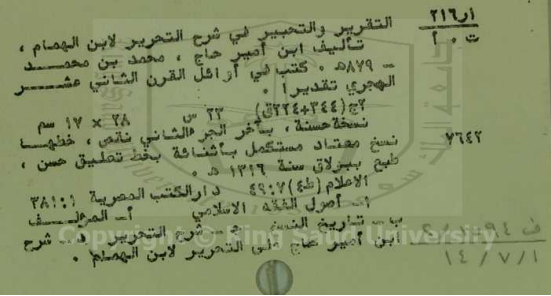 ٢١٦ر١
ت ٠ أ
التقرير والتحبير في شرح التحرير لابن الهمام ،
تأليف ابن أمير حاج ، محمد بن محمد
– ٨٧٩هـ ٠ كتب في أوائل القرن الثاني عشر
الهجري تقديرا ٠
٢ج (٣٤٤+٢٢٤ق) ٢٣ س ٢٨ × ١٧ سم
٧٦٤٢
نسخة حسنة ، بآخر الجزء الثاني نقص ، خطها
نسخ معتاد مستكمل بأثنائة بخط تعليق حسن ،
طبع ببولاق سنة ١٣١٦ هـ ٠
الاعلام (ط٤) ٤٩:٧ دار الكتب المصرية ٣٨١:١
١– أصول الفقه الاسلامي أ– المؤلف
ب– تاريخ النسخ ج– شرح التحرير د– شرح
ابن أمير حاج على التحرير لابن الهمام ٠
١٤/٧/١
Copyright © King Saud University